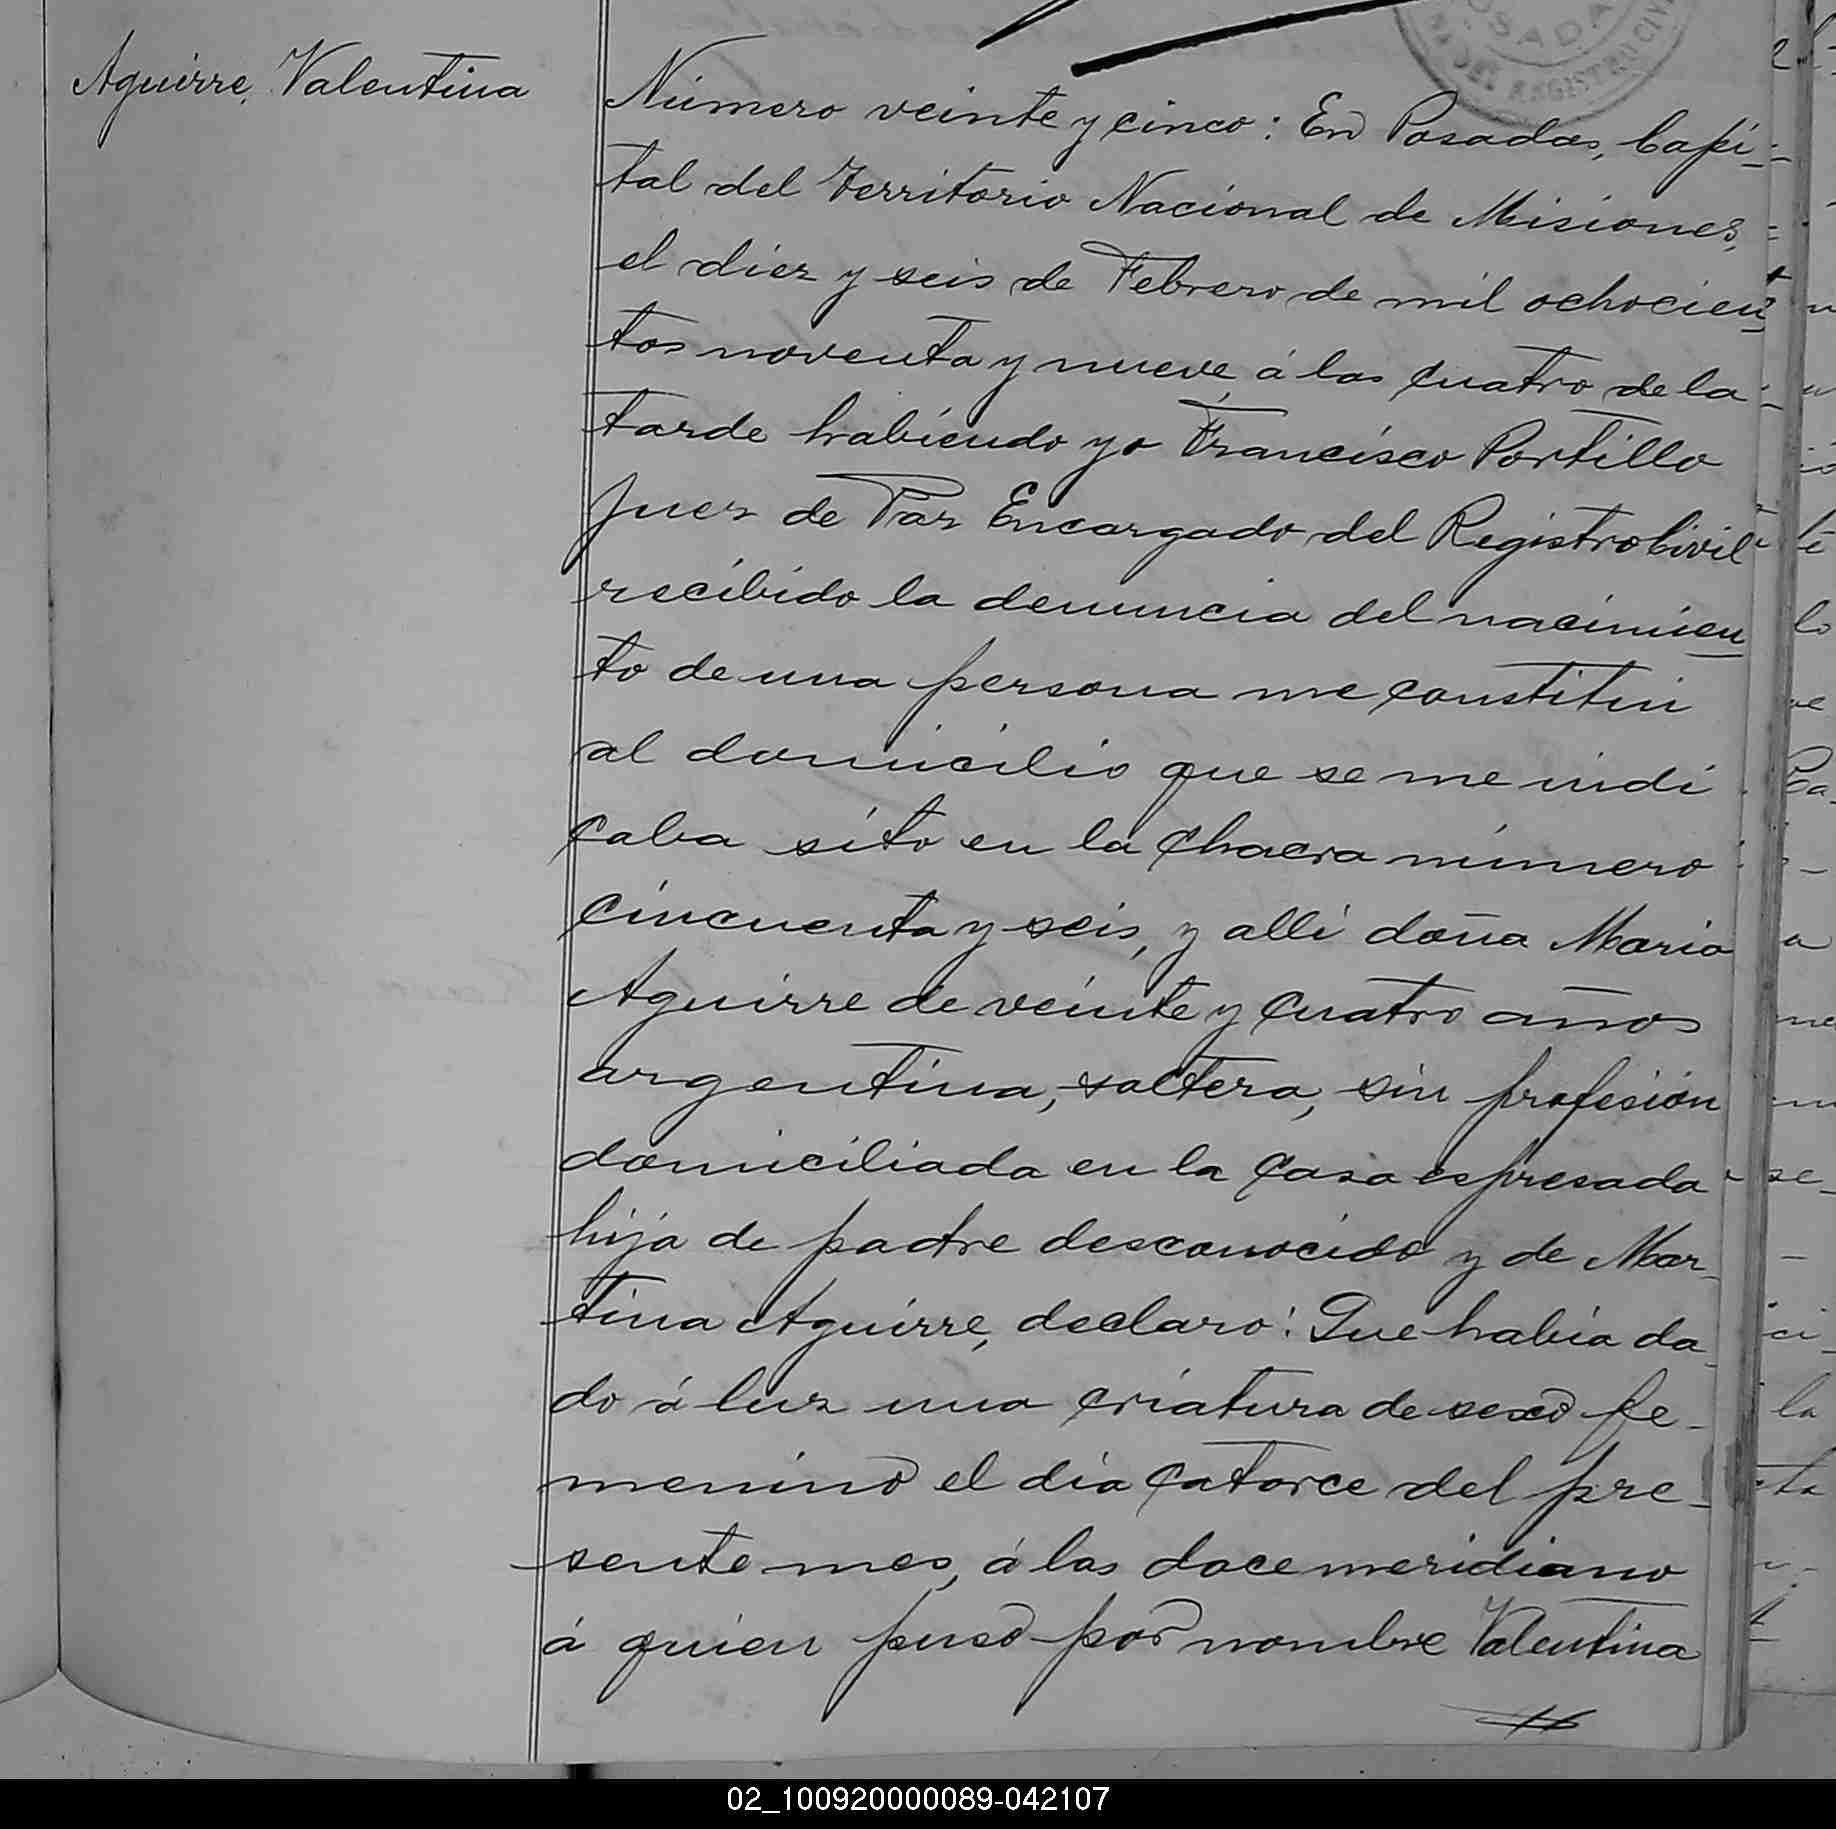 Aguirre, Valentina
Número veinte y cinco: En Posadas, Capi-
tal del Territorio Nacional de Misiones,
el diez y seis de Febrero de mil ochocien
tos noventa y nueve, á las cuatro de la
tarde habiendo yo Francisco Portillo
Juez de Paz Encargado del Registro Civil
recibido la denuncia del nacimien
to de una persona me constituí
al domicilio que se me indi
caba sito en la Chacra número
cincuenta y seis, y alli doña Maria
Aguirre de veinte y cuatro años
argentina, soltera, sin profesión
domiciliada en la casa espresada
hija de padre desconocido y de Mar-
tina Aguirre, declaro: Que había da-
do á luz una criatura de sexo fe-
menino el día catorce del pre-
sente mes, á las doce meridiano
á quien puso por nombre Valentina
02_100920000089-042107